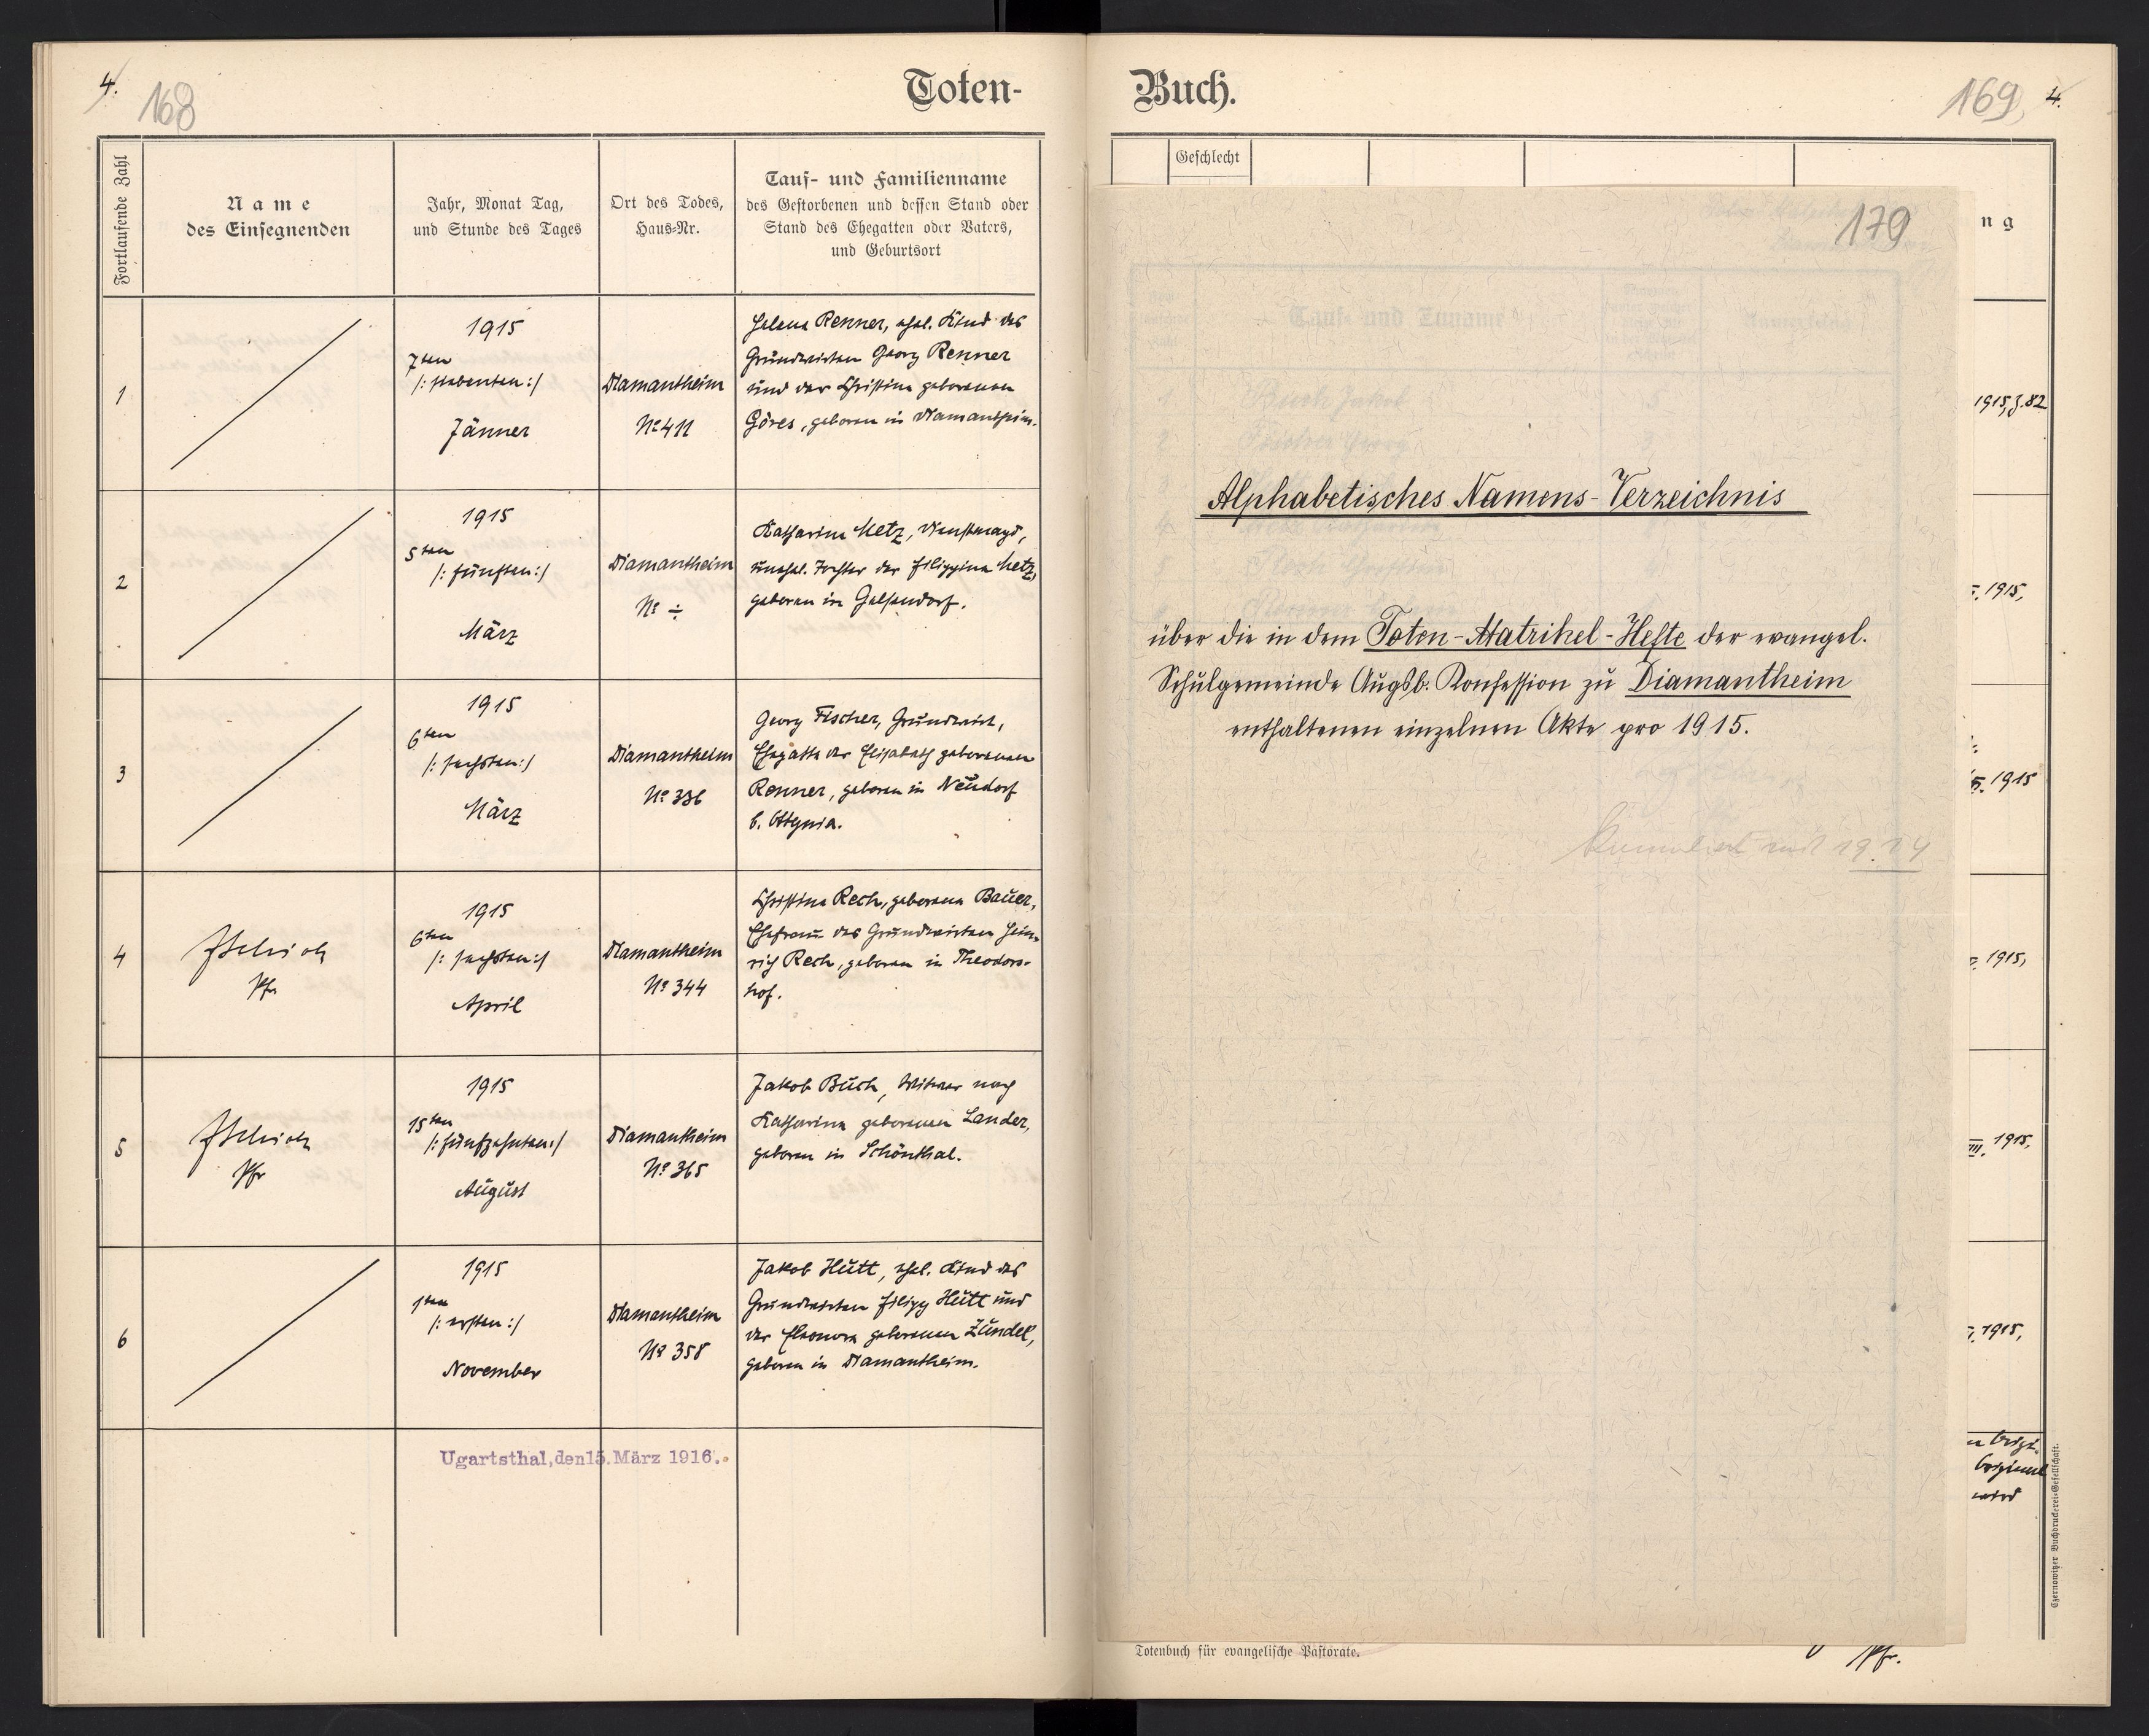 4.
168
Toten-
Fortlaufende Zahl
Name
des Einsegnenden
Jahr, Monat Tag,
und Stunde des Tages
Ort des Todes,
Haus-Nr.
Tauf- und Familienname
des Gestorbenen und dessen Stand oder
Stand des Ehegatten oder Vaters,
und Geburtsort
1
1915
7ten
/: siebenten :/
Jänner
Diamantheim
No 411
Helena Renner, ehel. Kind des
Grundwirten Georg Renner
und der Christina geborenen
Göres, geboren in Diamantheim.
2
1915
5ten
/: fünften :/
März
Diamantheim
No ÷
Katharina Metz, Dienstmagd,
unehel. Tochter der Filippina Metz,
geboren in Gelsendorf.
3
1915
6ten
/: sechsten :/
März
Diamantheim
No 336
Georg Fischer, Grundwirt,
Ehegatte der Elisabeth geborenen
Renner, geboren in Neudorf
b. Ottynia.
4
Pfr
1915
6ten
/: sechsten :/
April
Diamantheim
No 344
Christina Rech, geborene Bauer,
Ehefrau des Grundwirten Hein-
rich Rech, geboren in Theodors-
hof.
5
Pfr
1915
15ten
/: fünfzehnten :/
August
Diamantheim
No 365
Jakob Buch, Witwer nach
Katharina geborenen Lander,
geboren in Schönthal.
6
1915
1ten
/: ersten :/
November
Diamantheim
No 358
Jakob Hutt, ehel. Kind des
Grundwirten Filipp Hutt und
der Eleonora geborenen Zündel,
geboren in Diamantheim.
Ugartsthal, den 15. März 1916.
Buch.
169
4.
Geschlecht
ng
179
Alphabetisches Namens-Verzeichnis
über die in dem Toten-Matrikel-Hefte der evangel.
Schulgemeinde Augsb. Konfession zu Diamantheim
enthaltenen einzelnen Akte pro 1915.
mit 1914
1915, Z. 82
1915,
1915
1915,
III. 1915,
1915,
Original
wird
Totenbuch für evangelische Pastorate.
Pfr.
Czernowitzer Buchdruckerei-Gesellschaft.